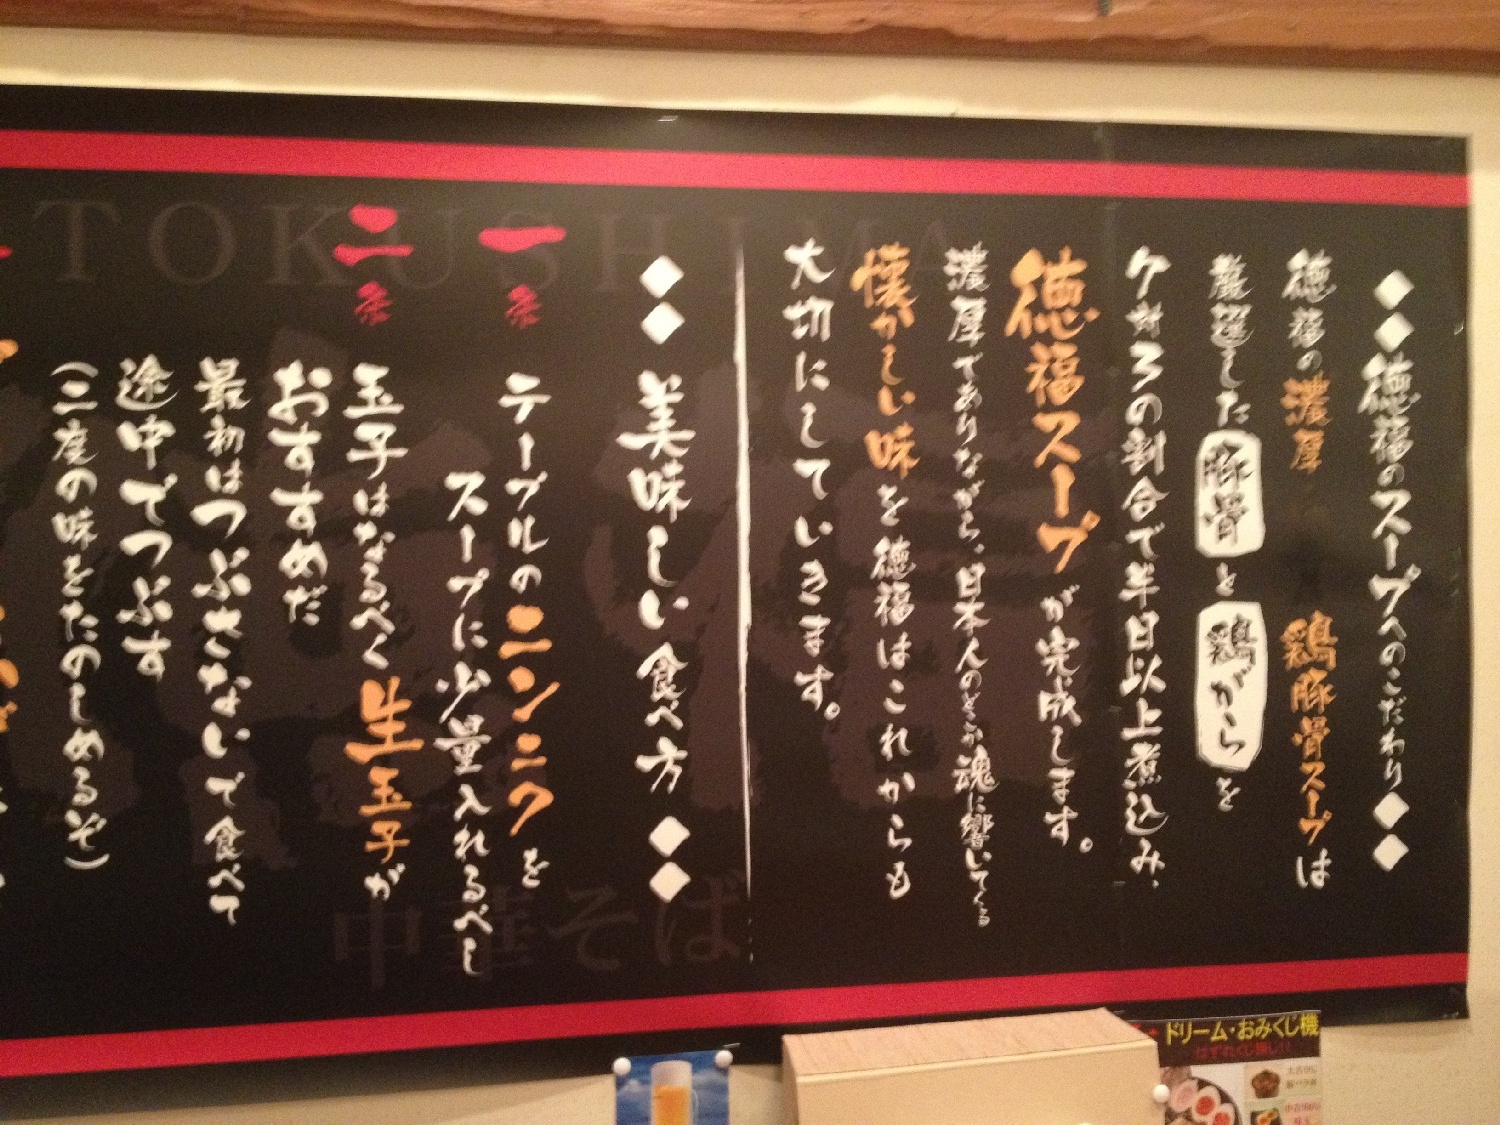 ◆◆徳福のスープへのこだわり◆◆
徳福の濃厚 鶏豚骨スープは
厳選した豚骨と鶏がらを
7対3の割合で半日以上煮込み、
徳福スープが完成します。
濃厚でありながら、日本人のどこか魂に響いてくる
懐かしい味を徳福はこれからも
大切にしていきます。
◆◆美味しい食べ方◆◆
一条 テーブルのニンニクを
スープに少量入れるべし
二条 玉子はなるべく生玉子が
おすすめだ
最初はつぶさないで食べて
途中でつぶす
(二度の味をたのしめるぞ)
TOKUSHIMA
中華そば
ドリーム・おみくじ機
はずれくじ無し!!